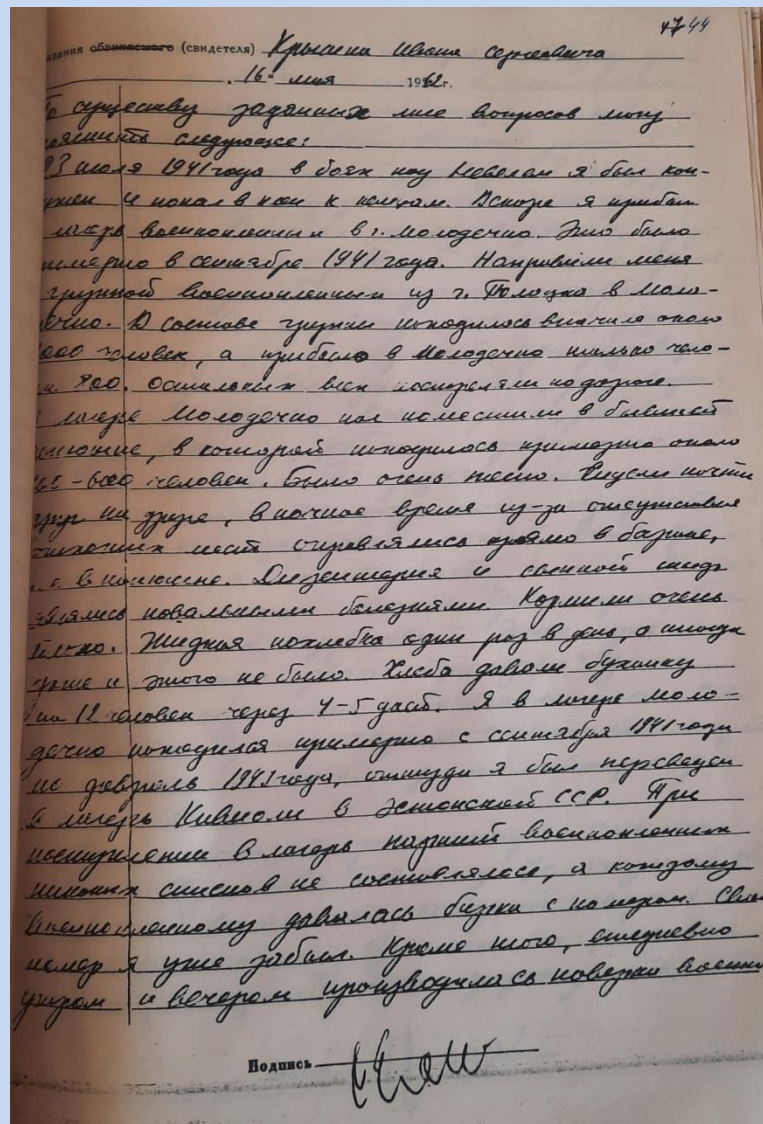 47 44
зания обвиняемого (свидетеля) Ивана Сергеевича
„16“ мая 1962 г.
По существу заданных мне вопросов могу
пояснить следующее:
23 июля 1941 года в боях под Невелем я был кон-
тужен и попал в плен к немцам. Вскоре я прибыл
лагерь военнопленных в г. Молодечно. Это было
примерно в сентябре 1941 года. Направили меня
группой военнопленных из г. Полоцка в Моло-
дечно. В составе группы находилось вначале около
000 человек, а прибыло в Молодечно только чело-
век 800. Остальных всех постреляли по дороге.
лагере Молодечно нас поместили в бывшей
конюшне, в которой находилось примерно около
человек. Было очень тесно. Сидели почти
друг на друге, в ночное время из-за отсутствия
мест оправлялись прямо в бараке,
т.е. в конюшне. Дизентерия и сыпной тиф
являлись повальными болезнями. Кормили очень
плохо. Жидкая похлебка один раз в день, а иногда
даже и этого не было. Хлеба давали буханку
на 12 человек через 4-5 дней. Я в лагере Моло-
дечно находился примерно с сентября 1941 года
по февраль 1943 года, откуда я был переведен
в лагерь Кивиоли в Эстонской ССР. При
поступлении в лагерь партий военнопленных
никаких списков не составлялось, а каждому
военнопленному давалась бирка с номером. Свой
номер я уже забыл. Кроме того, ежедневно
утром и вечером производилась поверка военно
Подпись